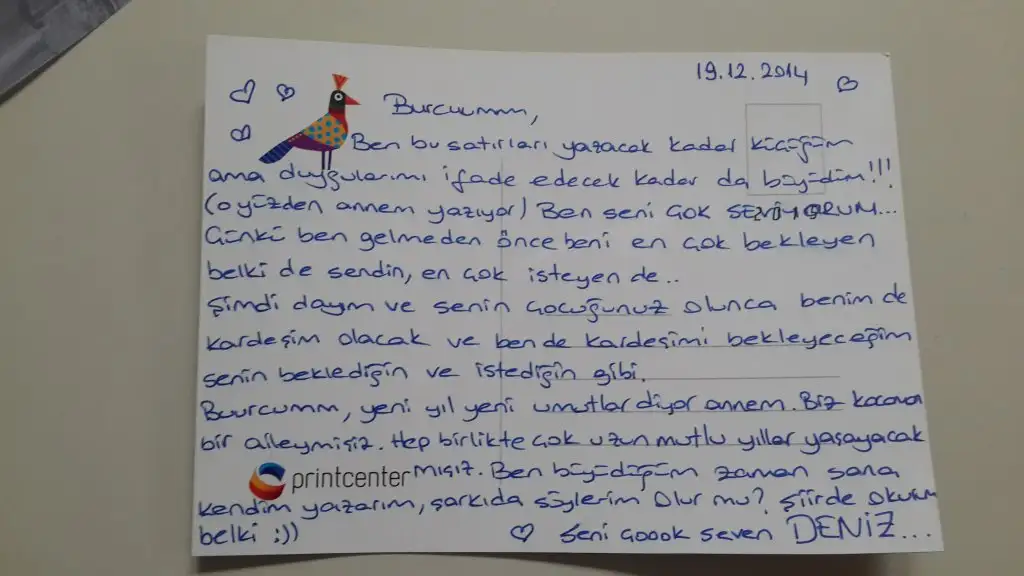 19.12.2014
Burcuumm,
Ben bu satırları yazacak kadar küçüğüm
ama duygularımı ifade edecek kadar da büyüdüm!!!
(o yüzden annem yazıyor) Ben seni çok SEVİYORUM...
Çünkü ben gelmeden önce beni en çok bekleyen
belki de sendin, en çok isteyen de..
Şimdi dayım ve senin çocuğunuz olunca benim de
kardeşim olacak ve bende kardeşimi bekleyeceğim
senin beklediğin ve istediğin gibi.
Buurcumm, yeni yıl yeni umutlar diyor annem. Biz kocaman
bir aileymişiz. Hep birlikte çok uzun mutlu yıllar yaşayacak
printcenter mışız. Ben büyüdüğüm zaman sana
kendim yazarım, şarkıda söylerim olur mu? Şiirde okurum
belki :)) Seni çoook seven DENİZ...